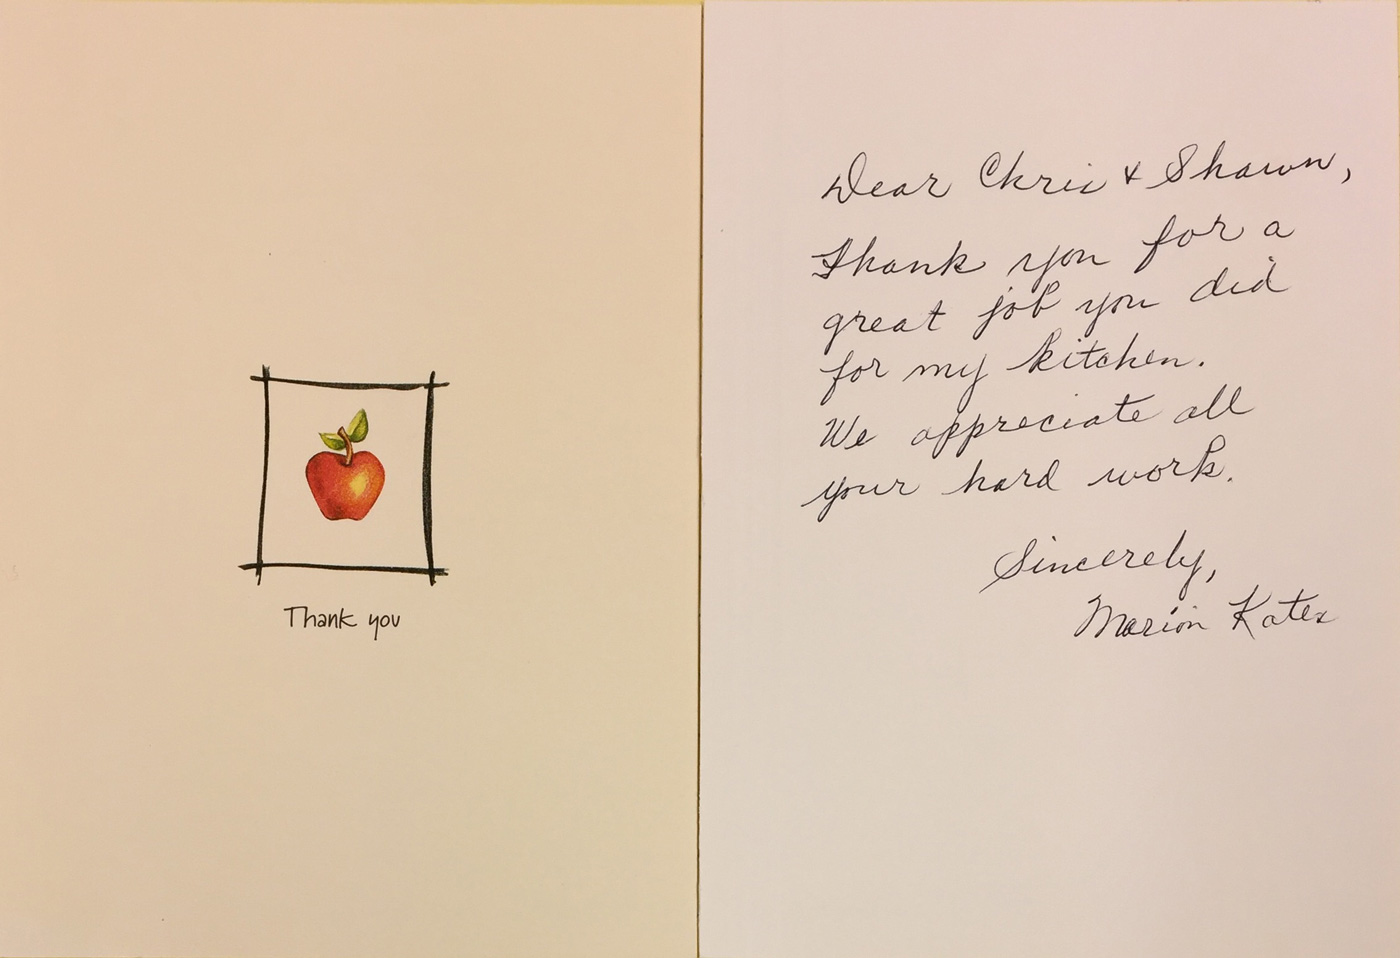 Thank you
Dear Chris & Shawn,
Thank you for a
great job you did
for my kitchen.
We appreciate all
your hard work.
Sincerely,
Marion Kates